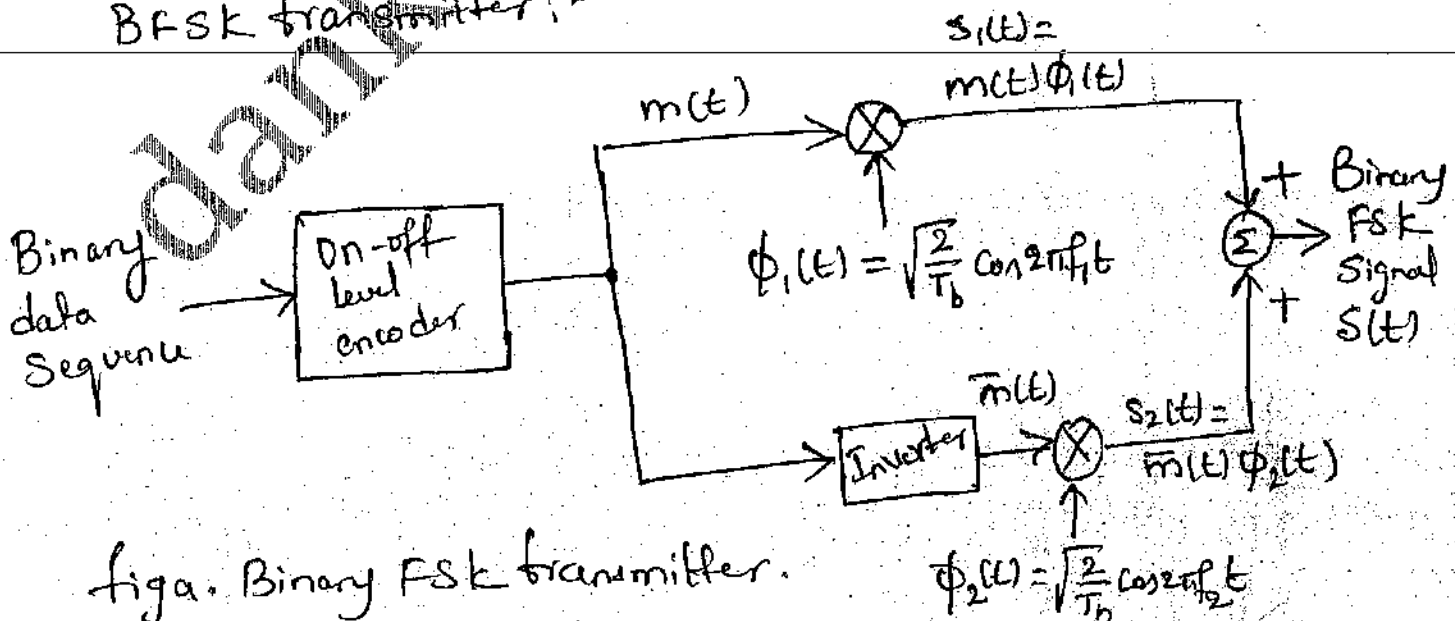 BFSK transmitter:
s₁(t)=
m(t)ϕ₁(t)
m(t)
Binary
data
Sequence
On-off
level
encoder
ϕ₁(t) = √(2/T_b) cos2πf₁t
+ Binary
FSK
Signal
S(t)
Σ
+
m̅(t)
Inverter
s₂(t)=
m̅(t) ϕ₂(t)
ϕ₂(t) = √(2/T_b) cos2πf₂t
fig a. Binary FSK transmitter.